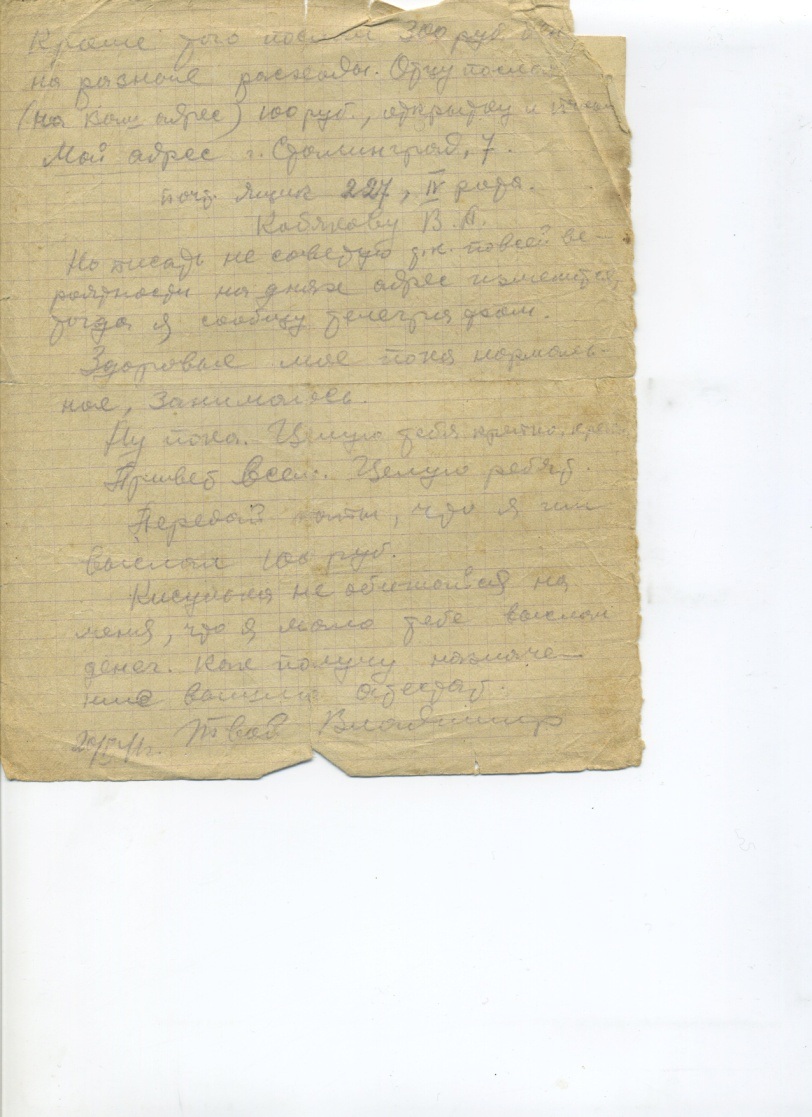 Кроме того послал 300 руб
на разные расходы. Отцу послал
(на ваш адрес) 100 руб., открытку и
Мой адрес г. Сталинград, 7.
почт. ящик 227, IV рота.
Кобякову В. А.
Но писать не советую т.к. по всей ве-
роятности на днях адрес изменится,
тогда я сообщу телеграфом.
Здоровье мое пока нормаль-
ное, занимаюсь.
Ну пока. Целую тебя крепко, креп
Привет всем. Целую ребят.
Передай что я им
выслал 100 руб.
Кисулька не обижайся на
меня, что я мало тебе выслал
денег. Как получу назначе-
ние вышлю атестат.
Твой Владимир